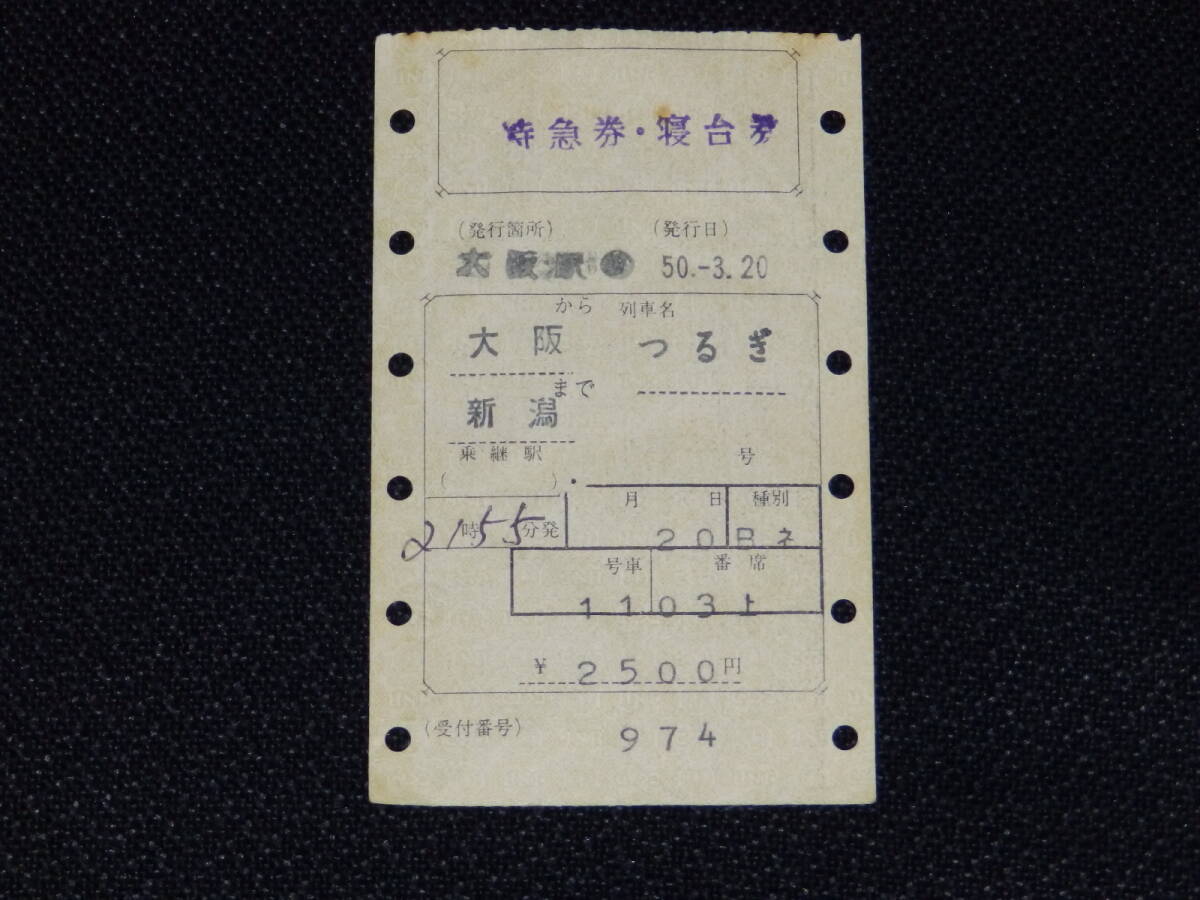 特急券・寝台券
(発行箇所) (発行日)
大阪駅 50.-3.20
から 列車名
大阪 つるぎ
まで
新潟
乗継駅 号
( )
月 日 種別
2155 時 分発 20 Bネ
号車 番席
11 03上
¥ 2500円
(受付番号) 974